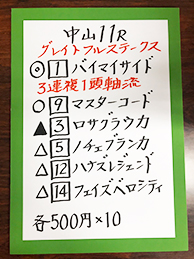 中山11R
グレイトフルステークス
◎1 バイマイサイド
3連複1頭軸流
○9 マスターコード
▲3 ロサグラウカ
△5 ノチェブランカ
△12 ハヴズレジェンド
△14 フェイズベロシティ
各500円×10